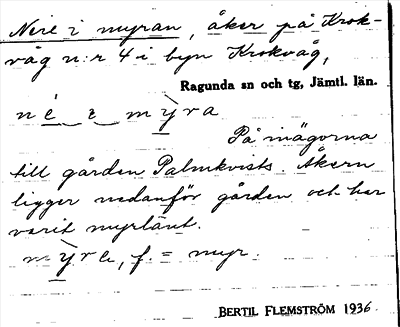 Nere i myran, åker på Krok-
våg n:r 4 i byn Krokvåg,
Ragunda sn och tg, Jämtl. län.
né ɩ mỳra
På inägorna
till gården Palmkvists. Åkern
ligger nedanför gården och har
varit myrlänt.
mỳra, f. = myr.
BERTIL FLEMSTRÖM 1936